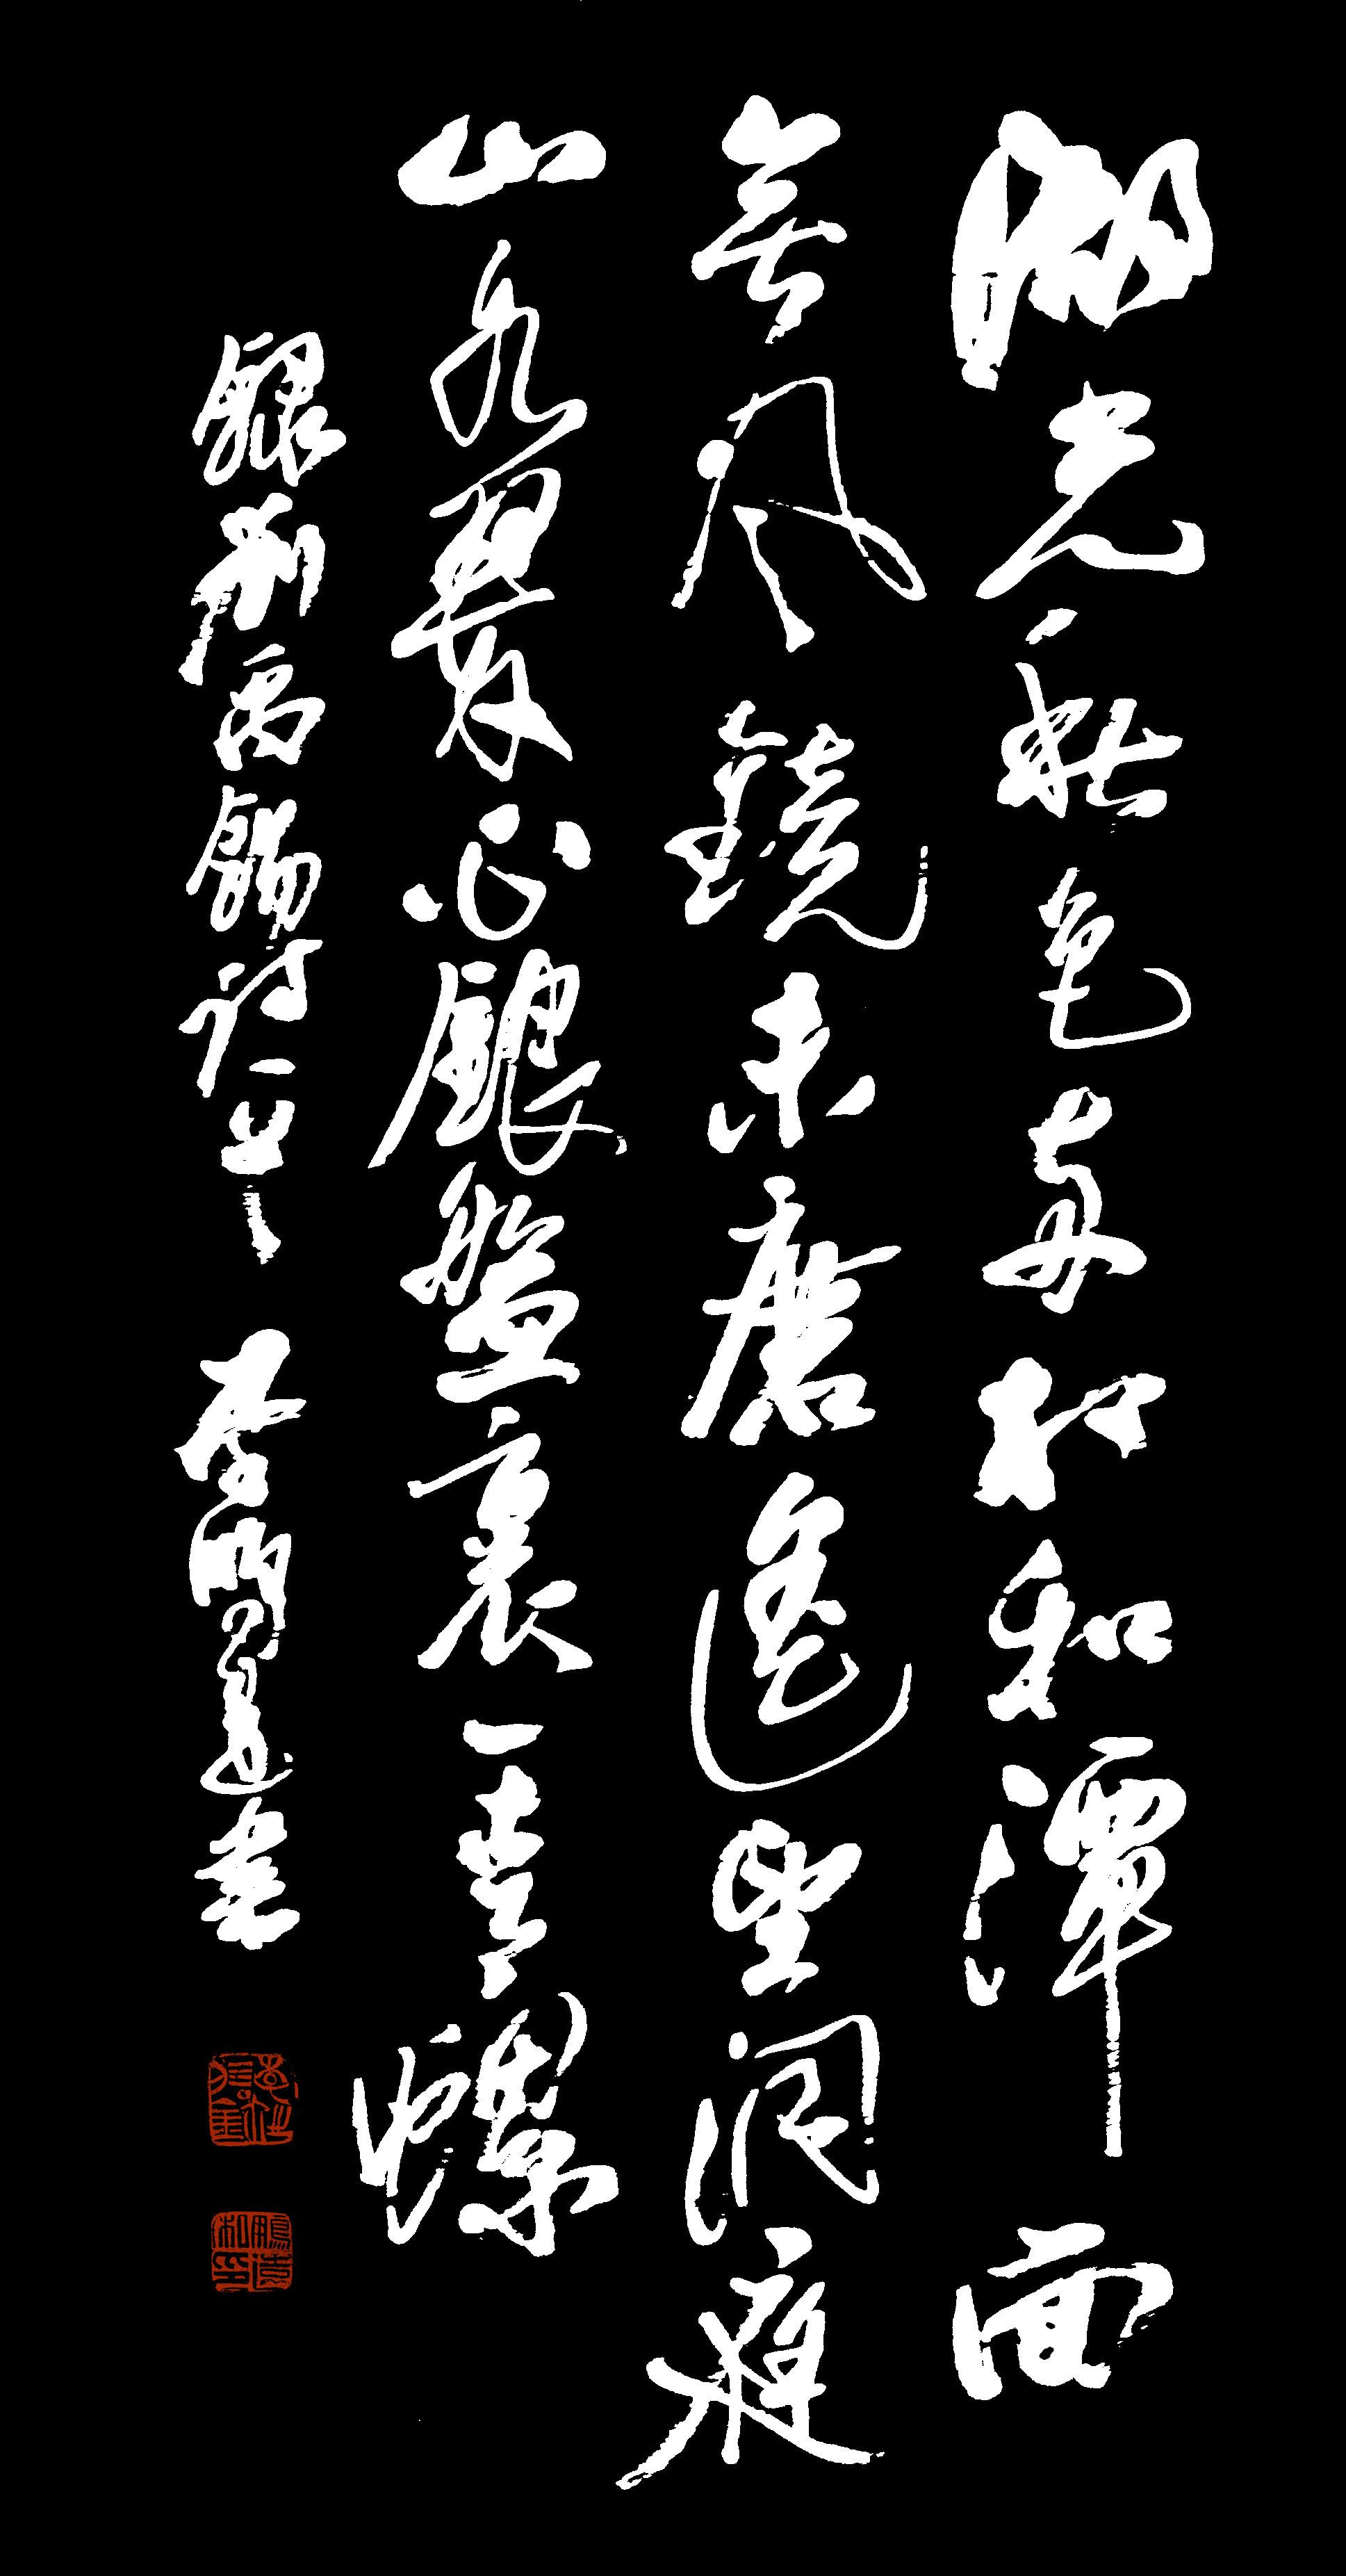 湖光秋色兩相和潭面
無風鏡未磨遙望洞庭
山水翠心銀盤裏一青螺
錄劉禹錫詩一首 李鵬遠書
鵬遠私印